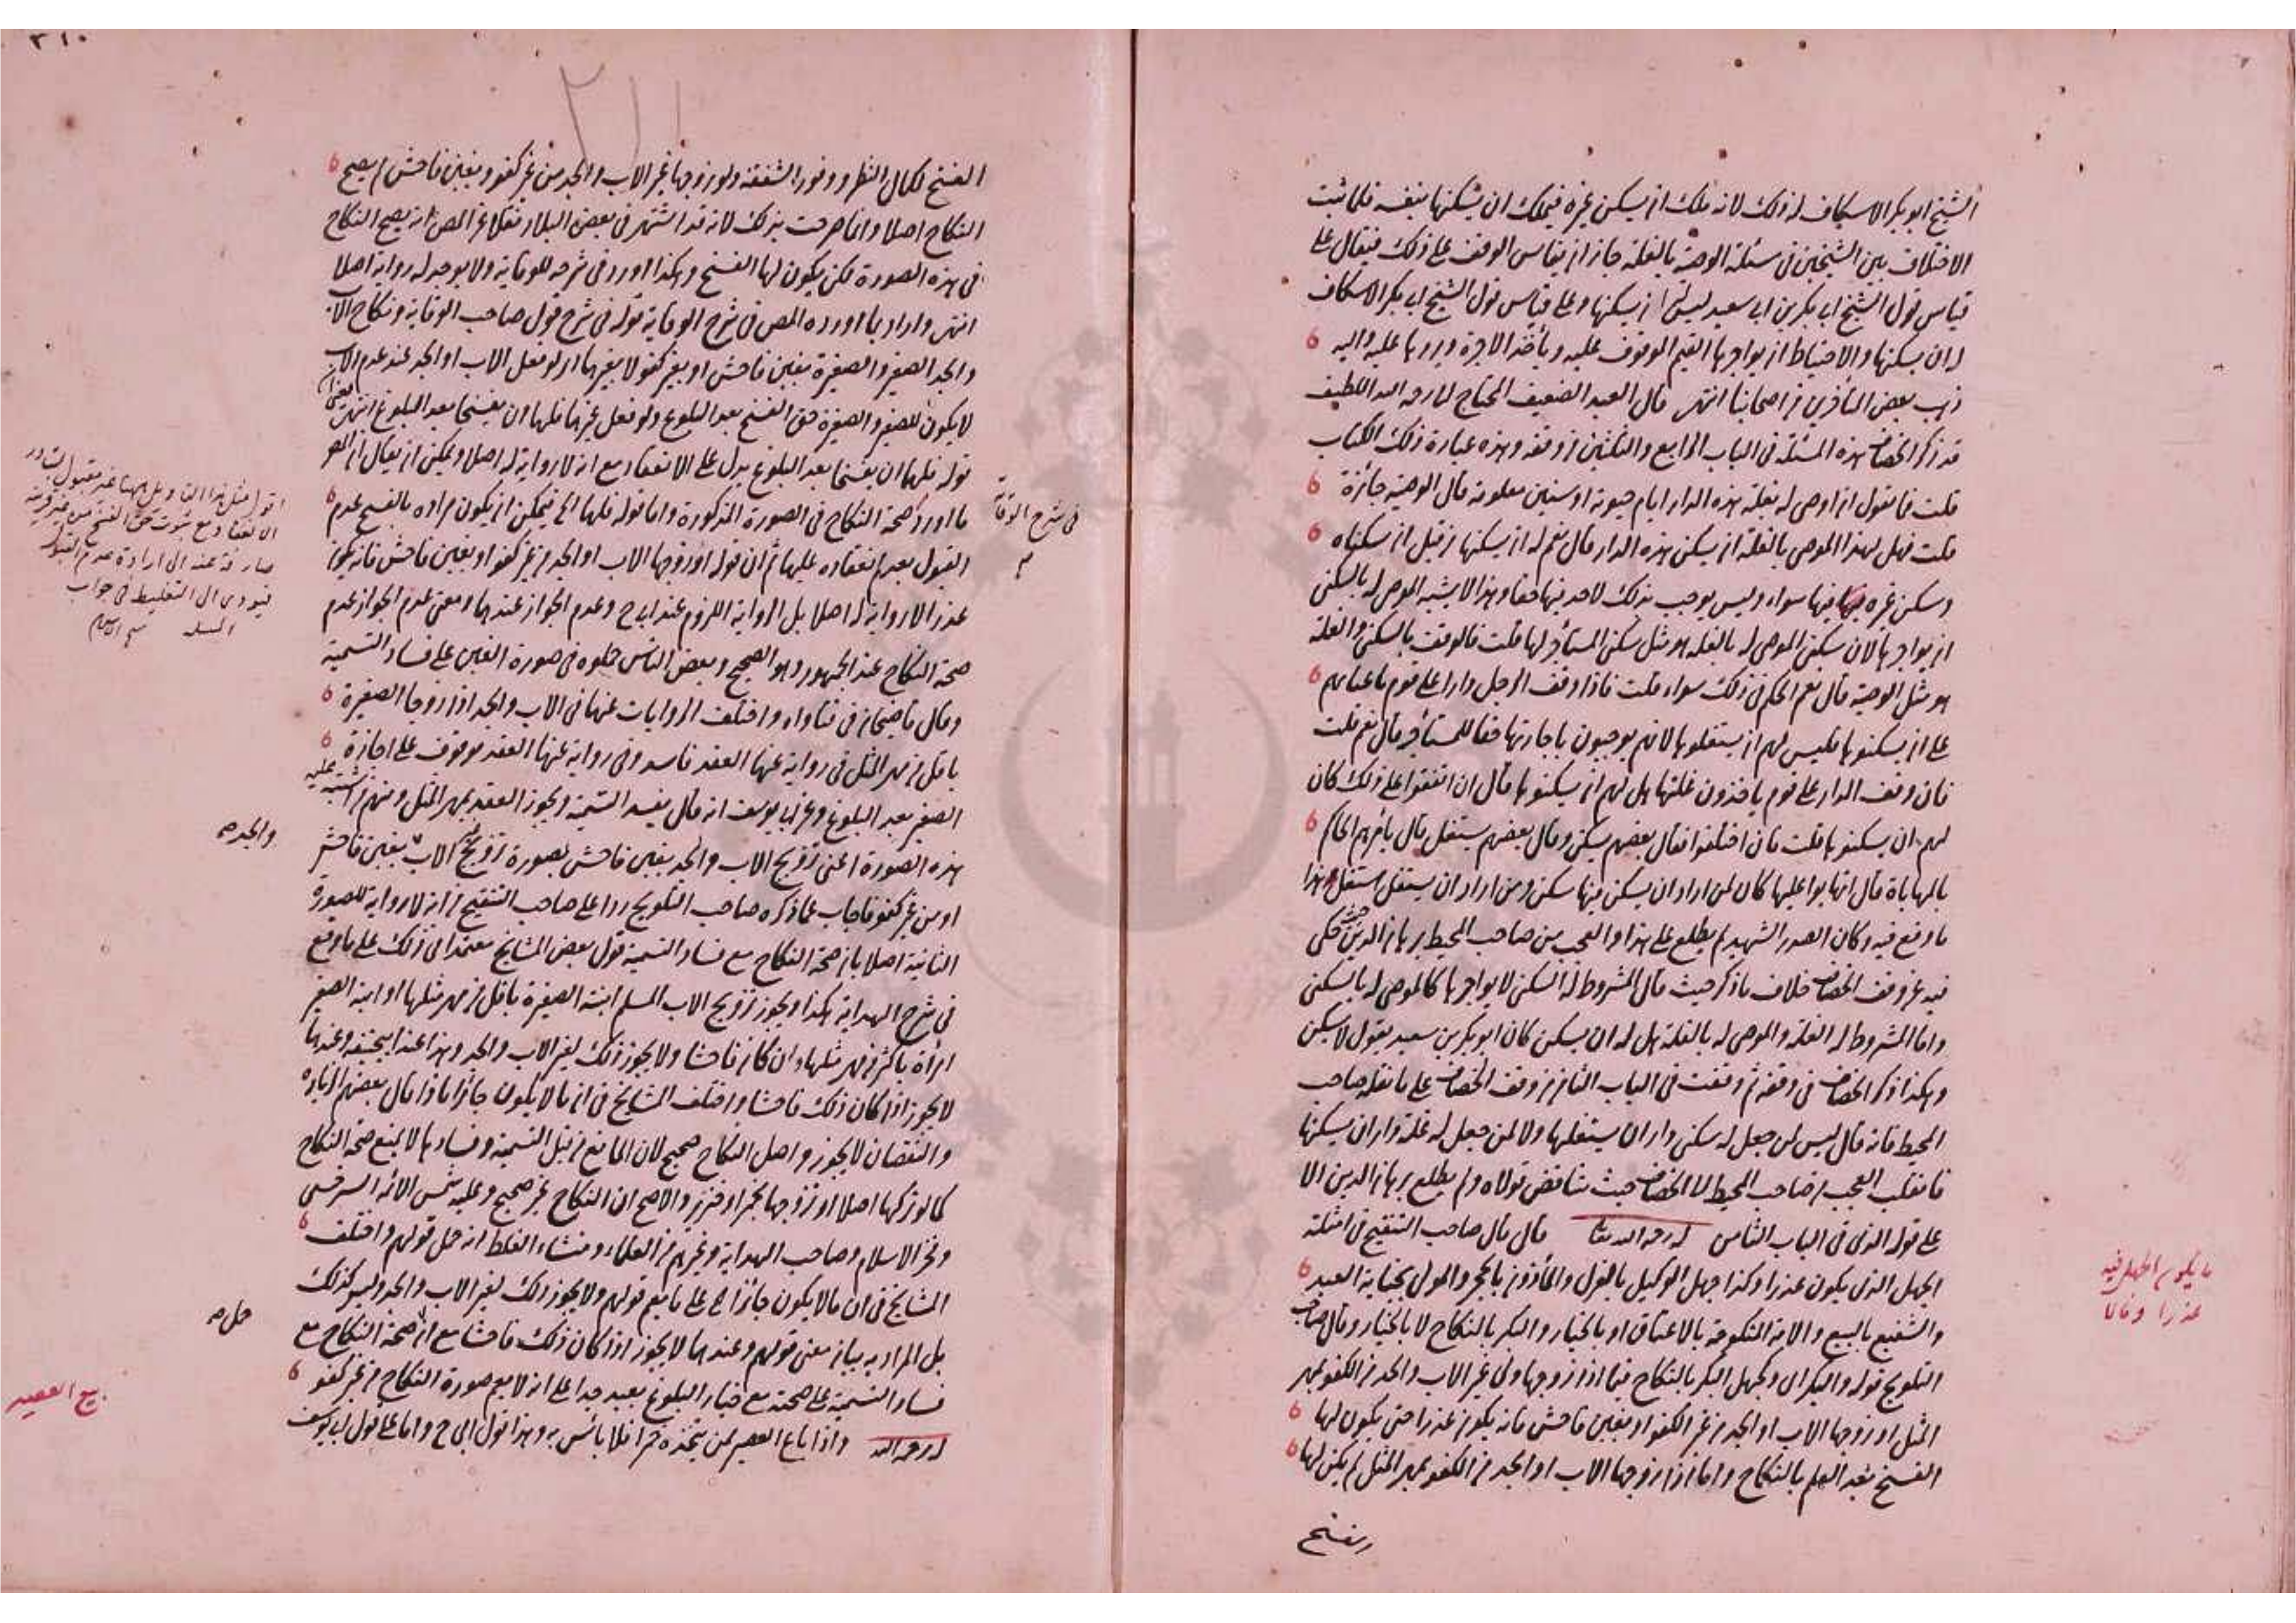 الشيخ ابو بكر الاسكاف له ذلك لانه ملك ان يسكن غيره فيملك ان يسكنها بنفسه فلما ثبت
الاختلاف بين الشيخين في مسئلة الوصية بالغلة جاز ان يقاس الوقف على ذلك فيقال على
قياس قول الشيخ ابي بكر بن ابي سعيد ليس له ان يسكنها وعلى قياس قول الشيخ ابي بكر الاسكاف
له ان يسكنها والاحتياط ان يواجرها القيم الموقوف عليه ويأخذ الاجرة ويردها عليه واليه
ذهب بعض المتأخرين من اصحابنا انتهى قال العبد الضعيف المحتاج لرحمة الله اللطيف
قد ذكر الخصاف هذه المسئلة في الباب الرابع والثلثين من وقفه وهذه عبارة ذلك الكتاب
قلت فما تقول ان اوصى له بغلة هذه الدار ايام حيوته او سنين معلومة قال الوصية جائزة
قلت فهل لهذا الموصى بالغلة ان يسكن هذه الدار قال نعم له ان يسكنها من قبل ان سكناه
وسكنى غيره فيها سواء وليس يوجب بذلك لاحد فيها حقا وهذا لا يشبه الموصى له بالسكنى
ان يواجرها لان سكنى الموصى له بالغلة هو مثل سكنى المستأجر لها قلت فالوقف بالسكنى والغلة
هو مثل الوصية قال نعم الحكم في ذلك سواء قلت فاذا وقف الرجل دارا على قوم باعيانهم
على ان يسكنوها فليس لهم ان يستغلوها لانهم يوجبون باجارتها حقا للمستأجر قال نعم قلت
فان وقف الدار على قوم يأخذون غلتها هل لهم ان يسكنوها قال ان اتفقوا على ذلك كان
لهم ان يسكنوها قلت فان اختلفوا فقال بعضهم يسكن وقال بعضهم يستغل قال يأمرهم الحاكم
بالمهاياة قال انتهابوا عليها كان لمن اراد ان يسكن فيها سكن ومن اراد ان يستغل استغل وهذا
ما وقع فيه وكان الصدر الشهيد لم يطلع على هذا والعجب من صاحب المحيط برهان الدين حيث حكى
فيه عن وقف الخصاف خلاف ما ذكر حيث قال المشروط له السكنى لا يواجرها كالموصى له بالسكنى
واما المشروط له الغلة والموصى له بالغلة هل له ان يسكن كان ابو بكر بن سعيد يقول لا يسكن
وهكذا ذكر الخصاف في وقفه ثم وقفت في الباب الثامن من وقف الخصاف على ما نقله صاحب
المحيط فانه قال ليس لمن جعل له سكنى دار ان يستغلها ولا لمن جعل له غلة دار ان يسكنها
فانقلب العجب من صاحب المحيط الى الخصاف حيث تناقض قولاه ولم يطلع برهان الدين الا
على قوله الذي في الباب الثامن له رحمه الله تعالى قال قال صاحب التنقيح في امثلة
الجهل الذي يكون عذرا وكذا جهل الوكيل بالعزل والمأذون بالحجر والمولى بجناية العبد
والشفيع بالبيع والامة المنكوحة بالاعتاق او بالخيار والبكر بالنكاح لا بالخيار وقال صاحب
التلويح قوله والبكر اي وكجهل البكر بالنكاح فيما اذا زوجها ولي غير الاب والجد من الكفو بمهر
المثل او زوجها الاب او الجد من غير الكفو او بغبن فاحش فانه يكون عذرا حتى يكون لها
الفسخ بعد العلم بالنكاح واما اذا زوجها الاب او الجد من الكفو بمهر المثل لم يكن لها
الفسخ
ما يكون الجهل فيه
عذرا وما لا
٣١٠
٣١١
الفسخ لكمال النظر ووفور الشفقة ولو زوجها غير الاب والجد من غير كفو وبغبن فاحش لم يصح
النكاح اصلا وانما صرحت بذلك لانه قد اشتهر في بعض البلاد نقلا عن المص انه يصح النكاح
في هذه الصورة لكن يكون لها الفسخ وهكذا اورد في شرحه للوقاية ولا يوجد له رواية اصلا
انتهى واراد بما اورده المص في شرح الوقاية قوله في شرح قول صاحب الوقاية ونكاح الاب
والجد الصغير والصغيرة بغبن فاحش او بغير كفو لا بغيرهما اي لو فعل الاب او الجد عند عدم الاب
لا يكون للصغير والصغيرة حق الفسخ بعد البلوغ ولو فعل غيرهما فلهما ان يفسخا بعد البلوغ انتهى يعني ان
قوله فلهما ان يفسخا بعد البلوغ يدل على الانعقاد مع انه لا رواية له اصلا ويمكن ان يقال ان المص
ما اورد صحة النكاح في الصورة المذكورة واما قوله فلهما الخ فيمكن ان يكون مراده بالفسخ عدم
القبول بعدم انعقاده عليهما ثم ان قوله او زوجها الاب او الجد من غير كفو او بغبن فاحش فانه يكون
عذرا لا رواية له اصلا بل الرواية اللزوم عند ابي ح وعدم الجواز عندهما ومعنى عدم الجواز عدم
صحة النكاح عند الجمهور وهو الصحيح وبعض الناس حملوه في صورة الغبن على فساد التسمية
وقال قاضيخان في فتاواه واختلف الروايات عنهما في الاب والجد اذا زوجا الصغيرة
باقل من مهر المثل في رواية عنهما العقد فاسد وفي رواية عنهما العقد موقوف على اجازة
الصغير بعد البلوغ وعن ابي يوسف انه قال يفسد التسمية ويجوز العقد بمهر المثل ومنهم من اشتبه عليه
هذه الصورة اعني تزويج الاب والجد بغبن فاحش بصورة تزويج غير الاب بغبن فاحش
او من غير كفو فاجاب عما ذكره صاحب التلويح ردا على صاحب التنقيح من انه لا رواية للصورة
الثانية اصلا بان صحة النكاح مع فساد التسمية قول بعض المشايخ معتمدا في ذلك على ما وقع
في شرح الهداية هكذا ويجوز تزويج الاب المسلم ابنته الصغيرة باقل من مهر مثلها او ابنه الصغير
امرأة باكثر من مهر مثلها وان كان فاحشا ولا يجوز ذلك لغير الاب والجد وهذا عند ابيحنيفة وعندهما
لا يجوز اذا كان ذلك فاحشا واختلف المشايخ في ان ما لا يكون جائزا ماذا قال بعضهم الزيادة
والنقصان لا يجوز واصل النكاح صحيح لان المانع من قبل التسمية وفسادها لا يمنع صحة النكاح
كما لو تركها اصلا او تزوجها بخمر او خنزير والاصح ان النكاح غير صحيح وعليه شمس الائمة السرخسي
وفخر الاسلام وصاحب الهداية وغيرهم من العلماء ومنشاء الغلط انه حمل قولهم واختلف
المشايخ في ان ما لا يكون جائزا الخ على ما يعم قولهم ولا يجوز ذلك لغير الاب والجد وليس كذلك
بل المراد به بيان معنى قولهم وعندهما لا يجوز اذا كان ذلك فاحشا مع ان صحة النكاح مع
فساد التسمية على صحته مع خيار البلوغ بعيد جدا على انه لا يعم صورة النكاح من غير كفو
له رحمه الله واذا باع العصير ممن يتخذه خمرا فلا بائس به وهذا قول ابي ح واما على قول ابي يوسف
في شرح الوقاية
اقول مثل هذا التأويل ههنا غير مقبول لتبادر
الانعقاد مع ثبوت حق الفسخ من غير قرينة
صارفة عنه الى ارادة عدم القبول
فيؤدي الى التغليط في جواب
المسئلة
والجد صح
حمل صح
بيع العصير